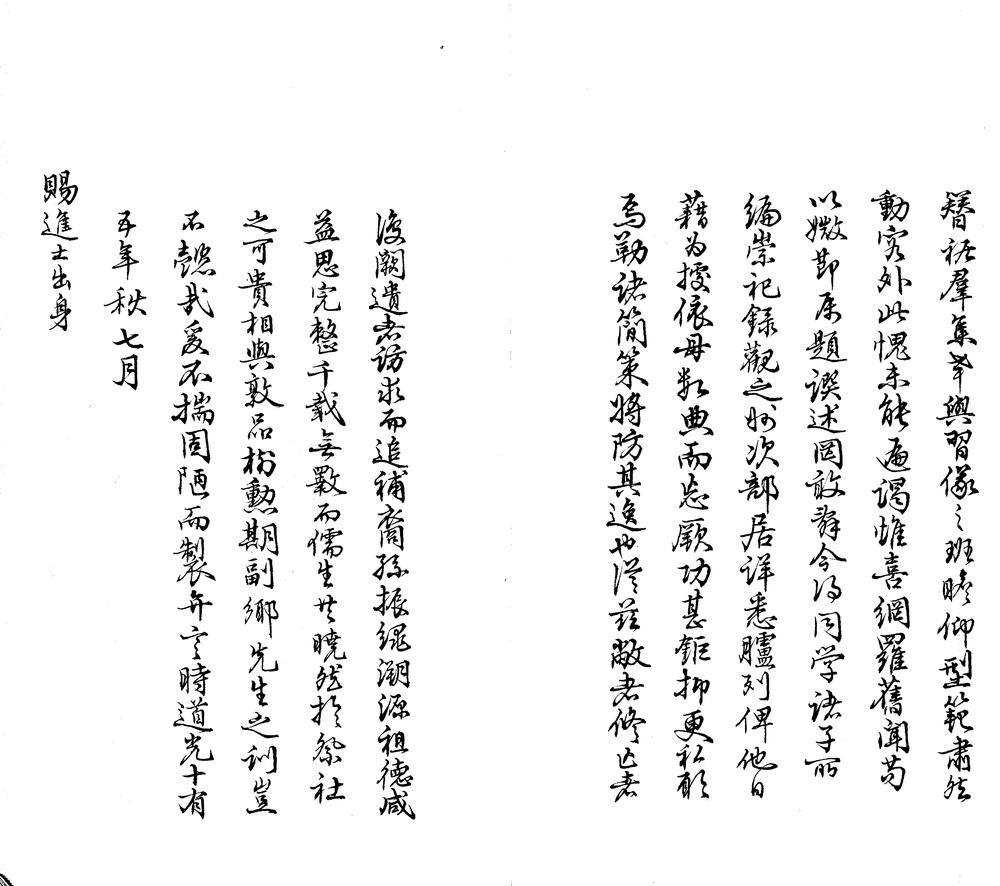 簪裾羣集畢與習儀之班瞻仰型範肅然
動容外此愧未能遍謁惟喜網羅舊聞苟
以媺節屬題譔述罔敢辭今得同学諸子所
編崇祀錄觀之州次部居詳悉臚列俾他日
藉为援依毋數典而忘厥功甚鉅抑更私願
焉勒諸簡策將防其逸也從茲敝者修亡者
復闕遺者訪求而追補裔孫振繩溯源祖德咸
益思完整千載無斁而儒生共曉然於祭社
之可貴相與敦品樹勲期副鄉先生之訓豈
不懿哉爰不揣固陋而製弁言時道光十有
五年秋七月
賜進士出身